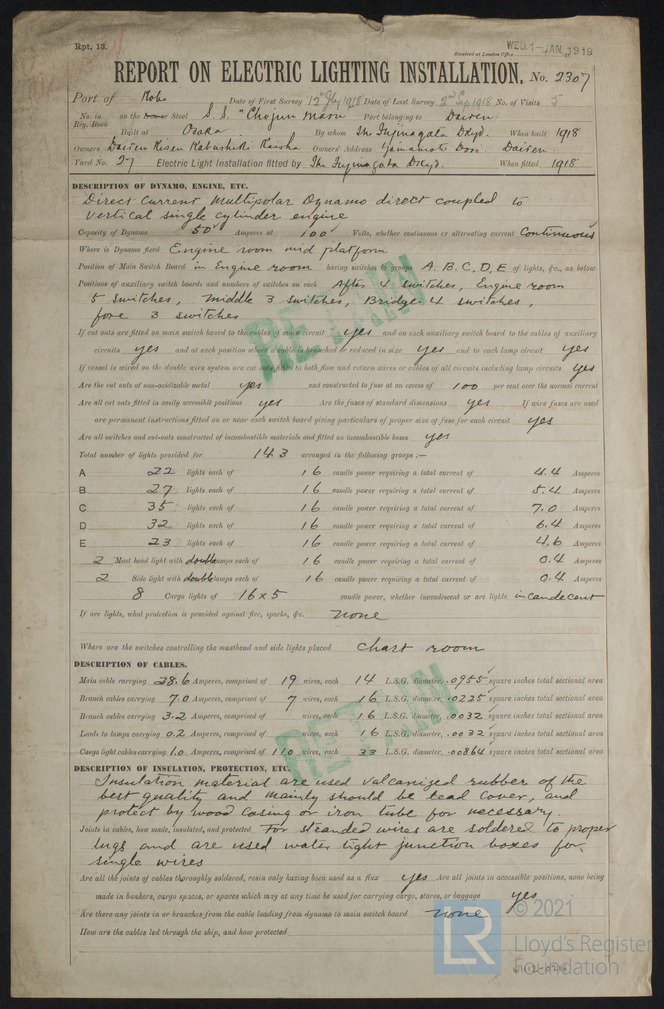 Rpt. 13.
Received at London Office WED. 1-JAN. 1919
REPORT ON ELECTRIC LIGHTING INSTALLATION. No. 2307
Port of Kobe Date of First Survey 12th July 1918 Date of Last Survey 2nd Sep 1918 No. of Visits 5
No. in Reg. Book on the Iron or Steel S.S. "Chojun Maru Port belonging to Dairen
Built at Osaka By whom The Fujinagata Dkyd. When built 1918
Owners Dairen Kisen Kabushiki Kaisha Owners' Address Yamamoto Dori Dairen
Yard No. 27 Electric Light Installation fitted by The Fujinagata Dkyd. When fitted 1918
DESCRIPTION OF DYNAMO, ENGINE, ETC.
Direct Current Multipolar Dynamo direct coupled to
vertical single cylinder engine
Capacity of Dynamo 50 Amperes at 100 Volts, whether continuous or alternating current Continuous
Where is Dynamo fixed Engine room mid platform
Position of Main Switch Board in Engine room having switches to groups A, B, C, D, E of lights, &c., as below
Positions of auxiliary switch boards and numbers of switches on each After 4 switches, Engine room
5 switches, Middle 3 switches, Bridge 4 switches,
fore 3 switches
If cut outs are fitted on main switch board to the cables of main circuit yes and on each auxiliary switch board to the cables of auxiliary
circuits yes and at each position where a cable is branched or reduced in size yes and to each lamp circuit yes
If vessel is wired on the double wire system are cut outs fitted to both flow and return wires or cables of all circuits including lamp circuits yes
Are the cut outs of non-oxidizable metal yes and constructed to fuse at an excess of 100 per cent over the normal current
Are all cut outs fitted in easily accessible positions yes Are the fuses of standard dimensions yes If wire fuses are used
are permanent instructions fitted on or near each switch board giving particulars of proper size of fuse for each circuit yes
Are all switches and cut-outs constructed of incombustible materials and fitted on incombustible bases yes
Total number of lights provided for 143 arranged in the following groups :—
A 22 lights each of 16 candle power requiring a total current of 4.4 Amperes
B 27 lights each of 16 candle power requiring a total current of 5.4 Amperes
C 35 lights each of 16 candle power requiring a total current of 7.0 Amperes
D 32 lights each of 16 candle power requiring a total current of 6.4 Amperes
E 23 lights each of 16 candle power requiring a total current of 4.6 Amperes
2 Mast head light with double lamps each of 16 candle power requiring a total current of 0.4 Amperes
2 Side light with double lamps each of 16 candle power requiring a total current of 0.4 Amperes
8 Cargo lights of 16 x 5 candle power, whether incandescent or arc lights incandecent
If arc lights, what protection is provided against fire, sparks, &c. none
Where are the switches controlling the masthead and side lights placed chart room
DESCRIPTION OF CABLES.
Main cable carrying 28.6 Amperes, comprised of 19 wires, each 14 L.S.G. diameter, .0955 square inches total sectional area
Branch cables carrying 7.0 Amperes, comprised of 7 wires, each 16 L.S.G. diameter, .0225 square inches total sectional area
Branch cables carrying 3.2 Amperes, comprised of wires, each 16 L.S.G. diameter, .0032 square inches total sectional area
Leads to lamps carrying 0.2 Amperes, comprised of wires, each 16 L.S.G. diameter, .0032 square inches total sectional area
Cargo light cables carrying 1.0 Amperes, comprised of 110 wires, each 33 L.S.G. diameter, .00864 square inches total sectional area
DESCRIPTION OF INSULATION, PROTECTION, ETC.
Insulation material are used valcanized rubber of the
best quality and mainly should be lead cover, and
protect by wood casing or iron tube for necessary.
Joints in cables, how made, insulated, and protected For stranded wires are soldered to proper
lugs and are used water tight junction boxes for
single wires
Are all the joints of cables thoroughly soldered, resin only having been used as a flux yes Are all joints in accessible positions, none being
made in bunkers, cargo spaces, or spaces which may at any time be used for carrying cargo, stores, or baggage yes
Are there any joints in or branches from the cable leading from dynamo to main switch board none
How are the cables led through the ship, and how protected
RETAIN
RETAIN
LR
© 2021
Lloyd's Register
Foundation